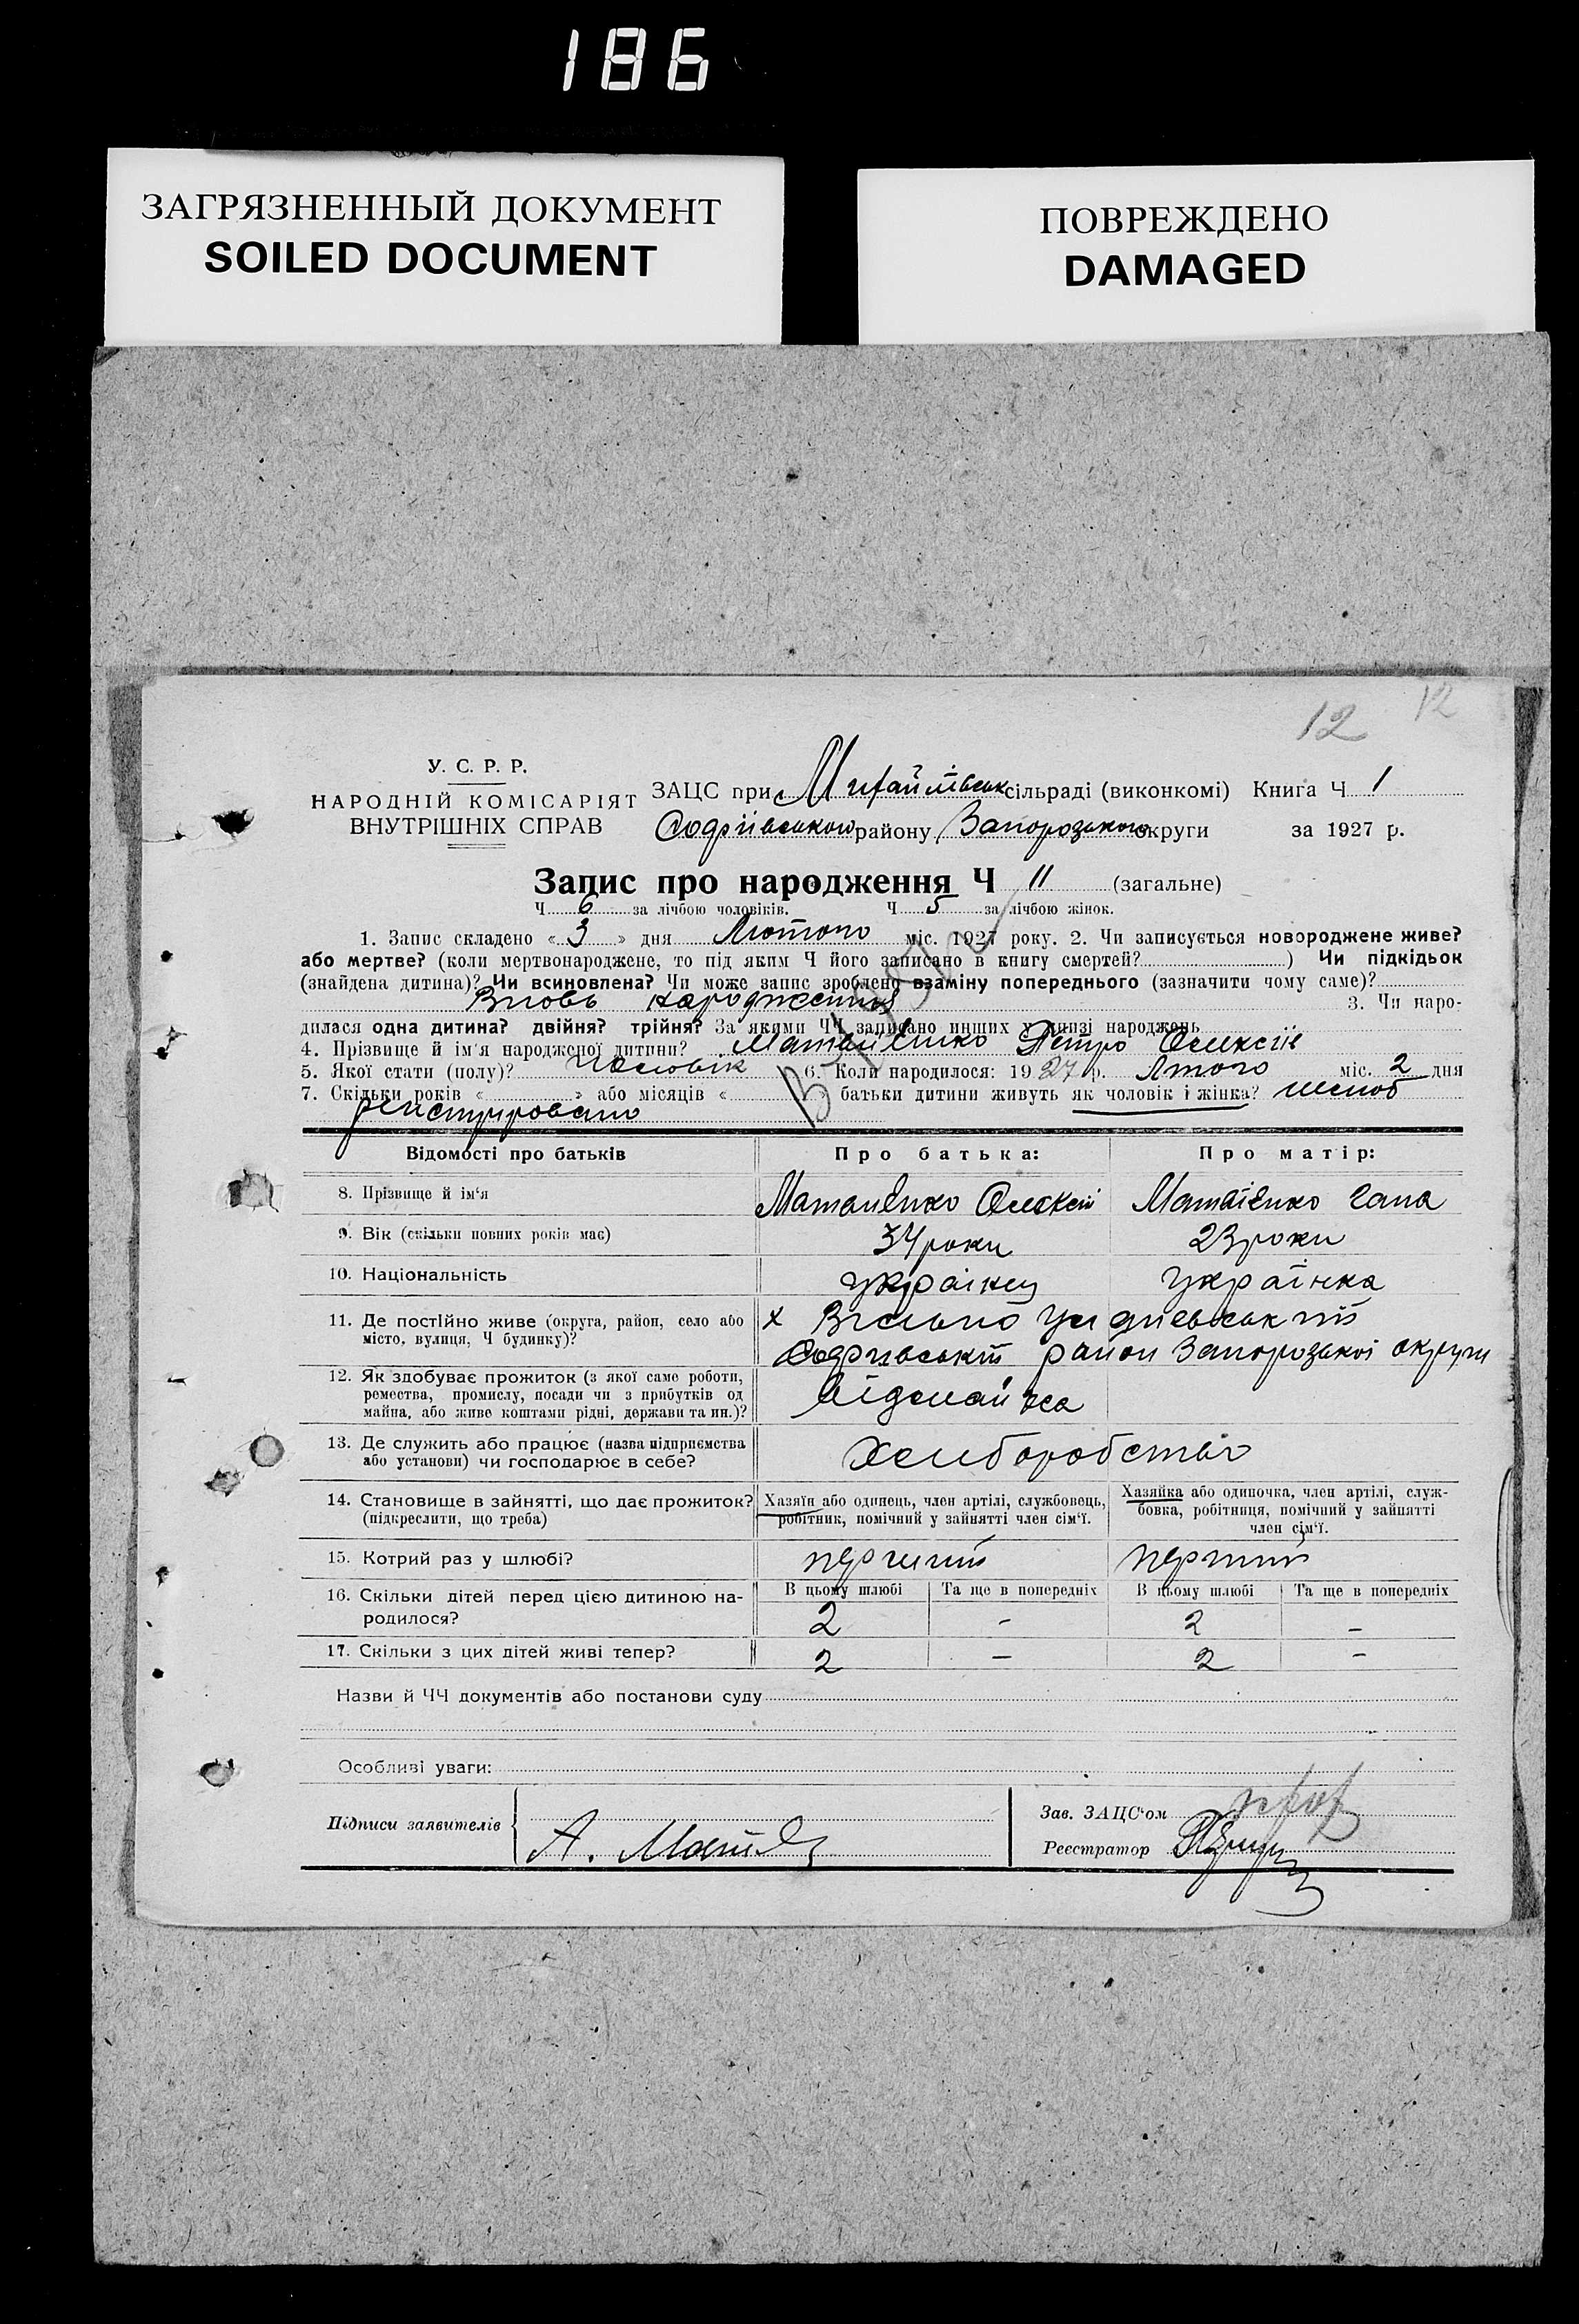 186
ЗАГРЯЗНЕННЫЙ ДОКУМЕНТ
SOILED DOCUMENT
ПОВРЕЖДЕНО
DAMAGED
12 12
У. С. Р. Р.
НАРОДНІЙ КОМІСАРІЯТ
ВНУТРІШНІХ СПРАВ
ЗАЦС при Михайлівськ сільраді (виконкомі) Книга Ч 1
Софіївського району Запорозького округи за 1927 р.
Запис про народження Ч 11 (загальне)
Ч 6 за лічбою чоловіків. Ч 5 за лічбою жінок.
1. Запис складено «3» дня Лютого міс. 1927 року. 2. Чи записується новороджене живе?
або мертве? (коли мертвонароджене, то під яким Ч його записано в книгу смертей? ) Чи підкідьок
(знайдена дитина)? Чи всиновлена? Чи може запис зроблено взаміну попереднього (зазначити чому саме)?
Вновь 3. Чи наро-
дилася одна дитина? двійня? трійня? За якими ЧЧ записано инших у книзі народжень
4. Прізвище й ім'я народженої дитини? Матвиенко Петро Олексіи
5. Якої стати (полу)? Чоловік 6. Коли народилося: 1927 р. Лютого міс. 2 дня
7. Скільки років « » або місяців « » батьки дитини живуть як чоловік і жінка? шлюб
регистрировано
Відомості про батьків
Про батька:
Про матір:
8. Прізвище й ім'я Олексій Гана
9. Вік (скільки повних років має) 34 роки 23 роки
10. Національність українец українка
11. Де постійно живе (округа, район, село або
місто, вулиця, Ч будинку)?
х Вильно
Софиівський район Запорозької округи
12. Як здобуває прожиток (з якої саме роботи,
ремества, промислу, посади чи з прибутків од
майна, або живе коштами рідні, держави та ин.)?
13. Де служить або працює (назва підприємства
або установи) чи господарює в себе?
Хлиборобство
14. Становище в зайнятті, що дає прожиток?
(підкреслити, що треба)
Хазяїн або одинець, член артілі, службовець,
робітник, помічний у зайнятті член сім'ї.
Хазяйка або одиночка, член артілі, служ-
бовка, робітниця, помічний у зайнятті
член сім'ї.
15. Котрий раз у шлюбі? перший перший
16. Скільки дітей перед цією дитиною на-
родилося?
В цьому шлюбі Та ще в попередніх В цьому шлюбі Та ще в попередніх
2 - 2 -
17. Скільки з цих дітей живі тепер? 2 — 2 —
Назви й ЧЧ документів або постанови суду
Особливі уваги:
Підписи заявителів
А.
Зав. ЗАЦС'ом
Реєстратор